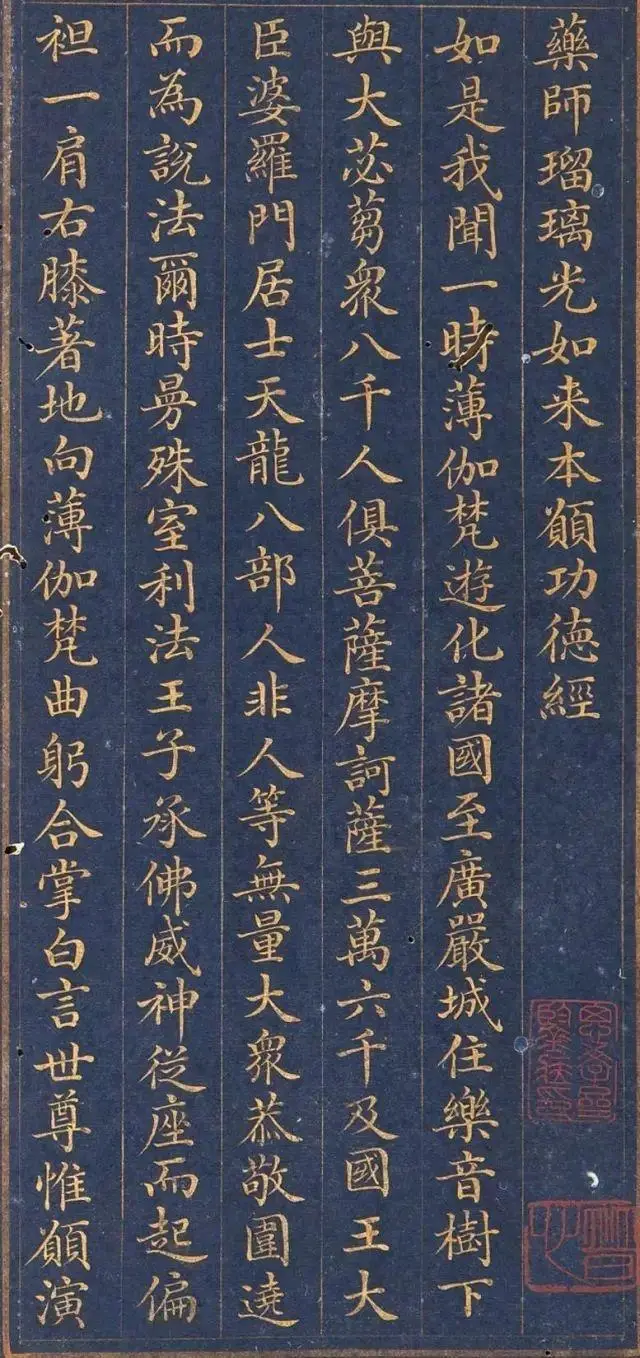 藥師瑠璃光如来本願功徳經
如是我聞一時薄伽梵遊化諸國至廣嚴城住樂音樹下
與大苾蒭衆八千人俱菩薩摩訶薩三萬六千及國王大
臣婆羅門居士天龍八部人非人等無量大衆恭敬圍遶
而為説法爾時曼殊室利法王子承佛威神從座而起偏
袒一肩右膝著地向薄伽梵曲躬合掌白言世尊惟願演